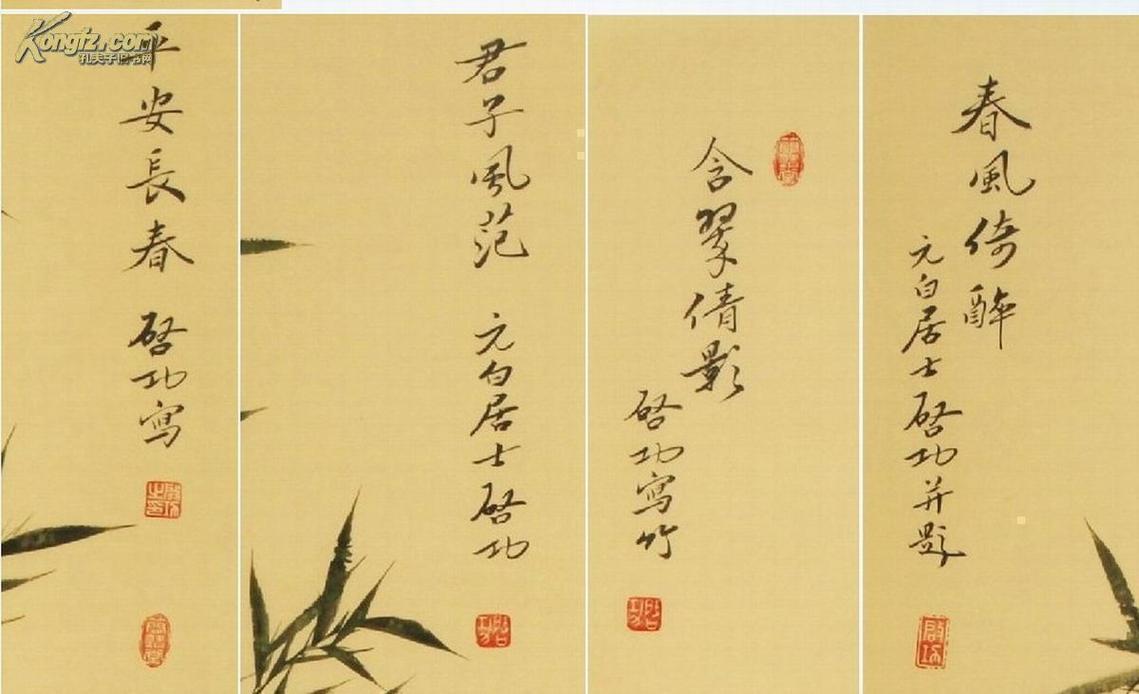 Kongfz.com
孔夫子旧书网
平安長春 啓功写
君子風范 元白居士啓功
含翠倩影
啓功写竹
春風倚醉
元白居士啓功并题